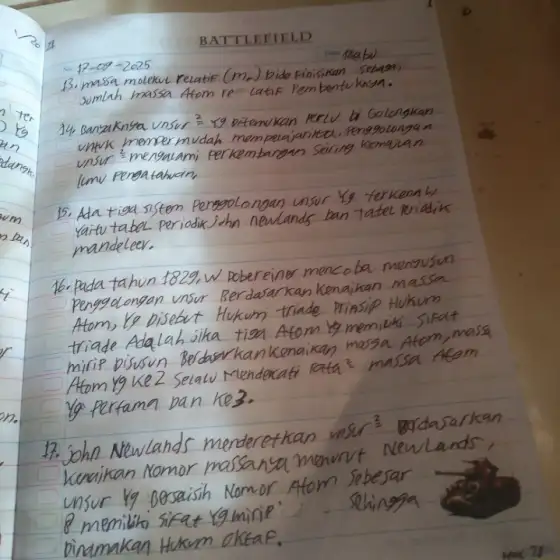 BATTLEFIELD
17-09-2025
Rabu
13. massa molekul relatif (Mr) Dide Finisikan sebagai
Jumlah massa Atom re latif Pembentuknya.
14. Banyaknya unsur² yg Ditemukan Perlu Di Golongkan
untuk mempermudah mempelajarinya. Penggolongan
unsur² mengalami Perkembangan Seiring Kemajuan
Ilmu Pengatahuan.
15. Ada tiga sistem Penggolongan unsur yg terkenal
yaitu tabel Periodik john newlands Dan Tabel Periodik
mandeleev.
16. Pada tahun 1829, W Dobereiner mencoba menyusun
Penggolongan unsur Berdasarkan Kenaikan massa
Atom, Yg Disebut Hukum triade Prinsip Hukum
triade Adalah Jika tiga Atom Yg memiliki Sifat
mirip Disusun Berdasarkan Kenaikan massa Atom, massa
Atom Yg Ke2 Selalu Mendekati Rata² massa Atom
Yg Pertama Dan Ke3.
17. John Newlands menderetkan unsur² Berdasarkan
Kenaikan Nomor massanya menurut Newlands,
unsur Yg Berselisih Nomor Atom Sebesar
8 memiliki Sifat Yg mirip Sehingga
Dinamakan Hukum Oktaf.